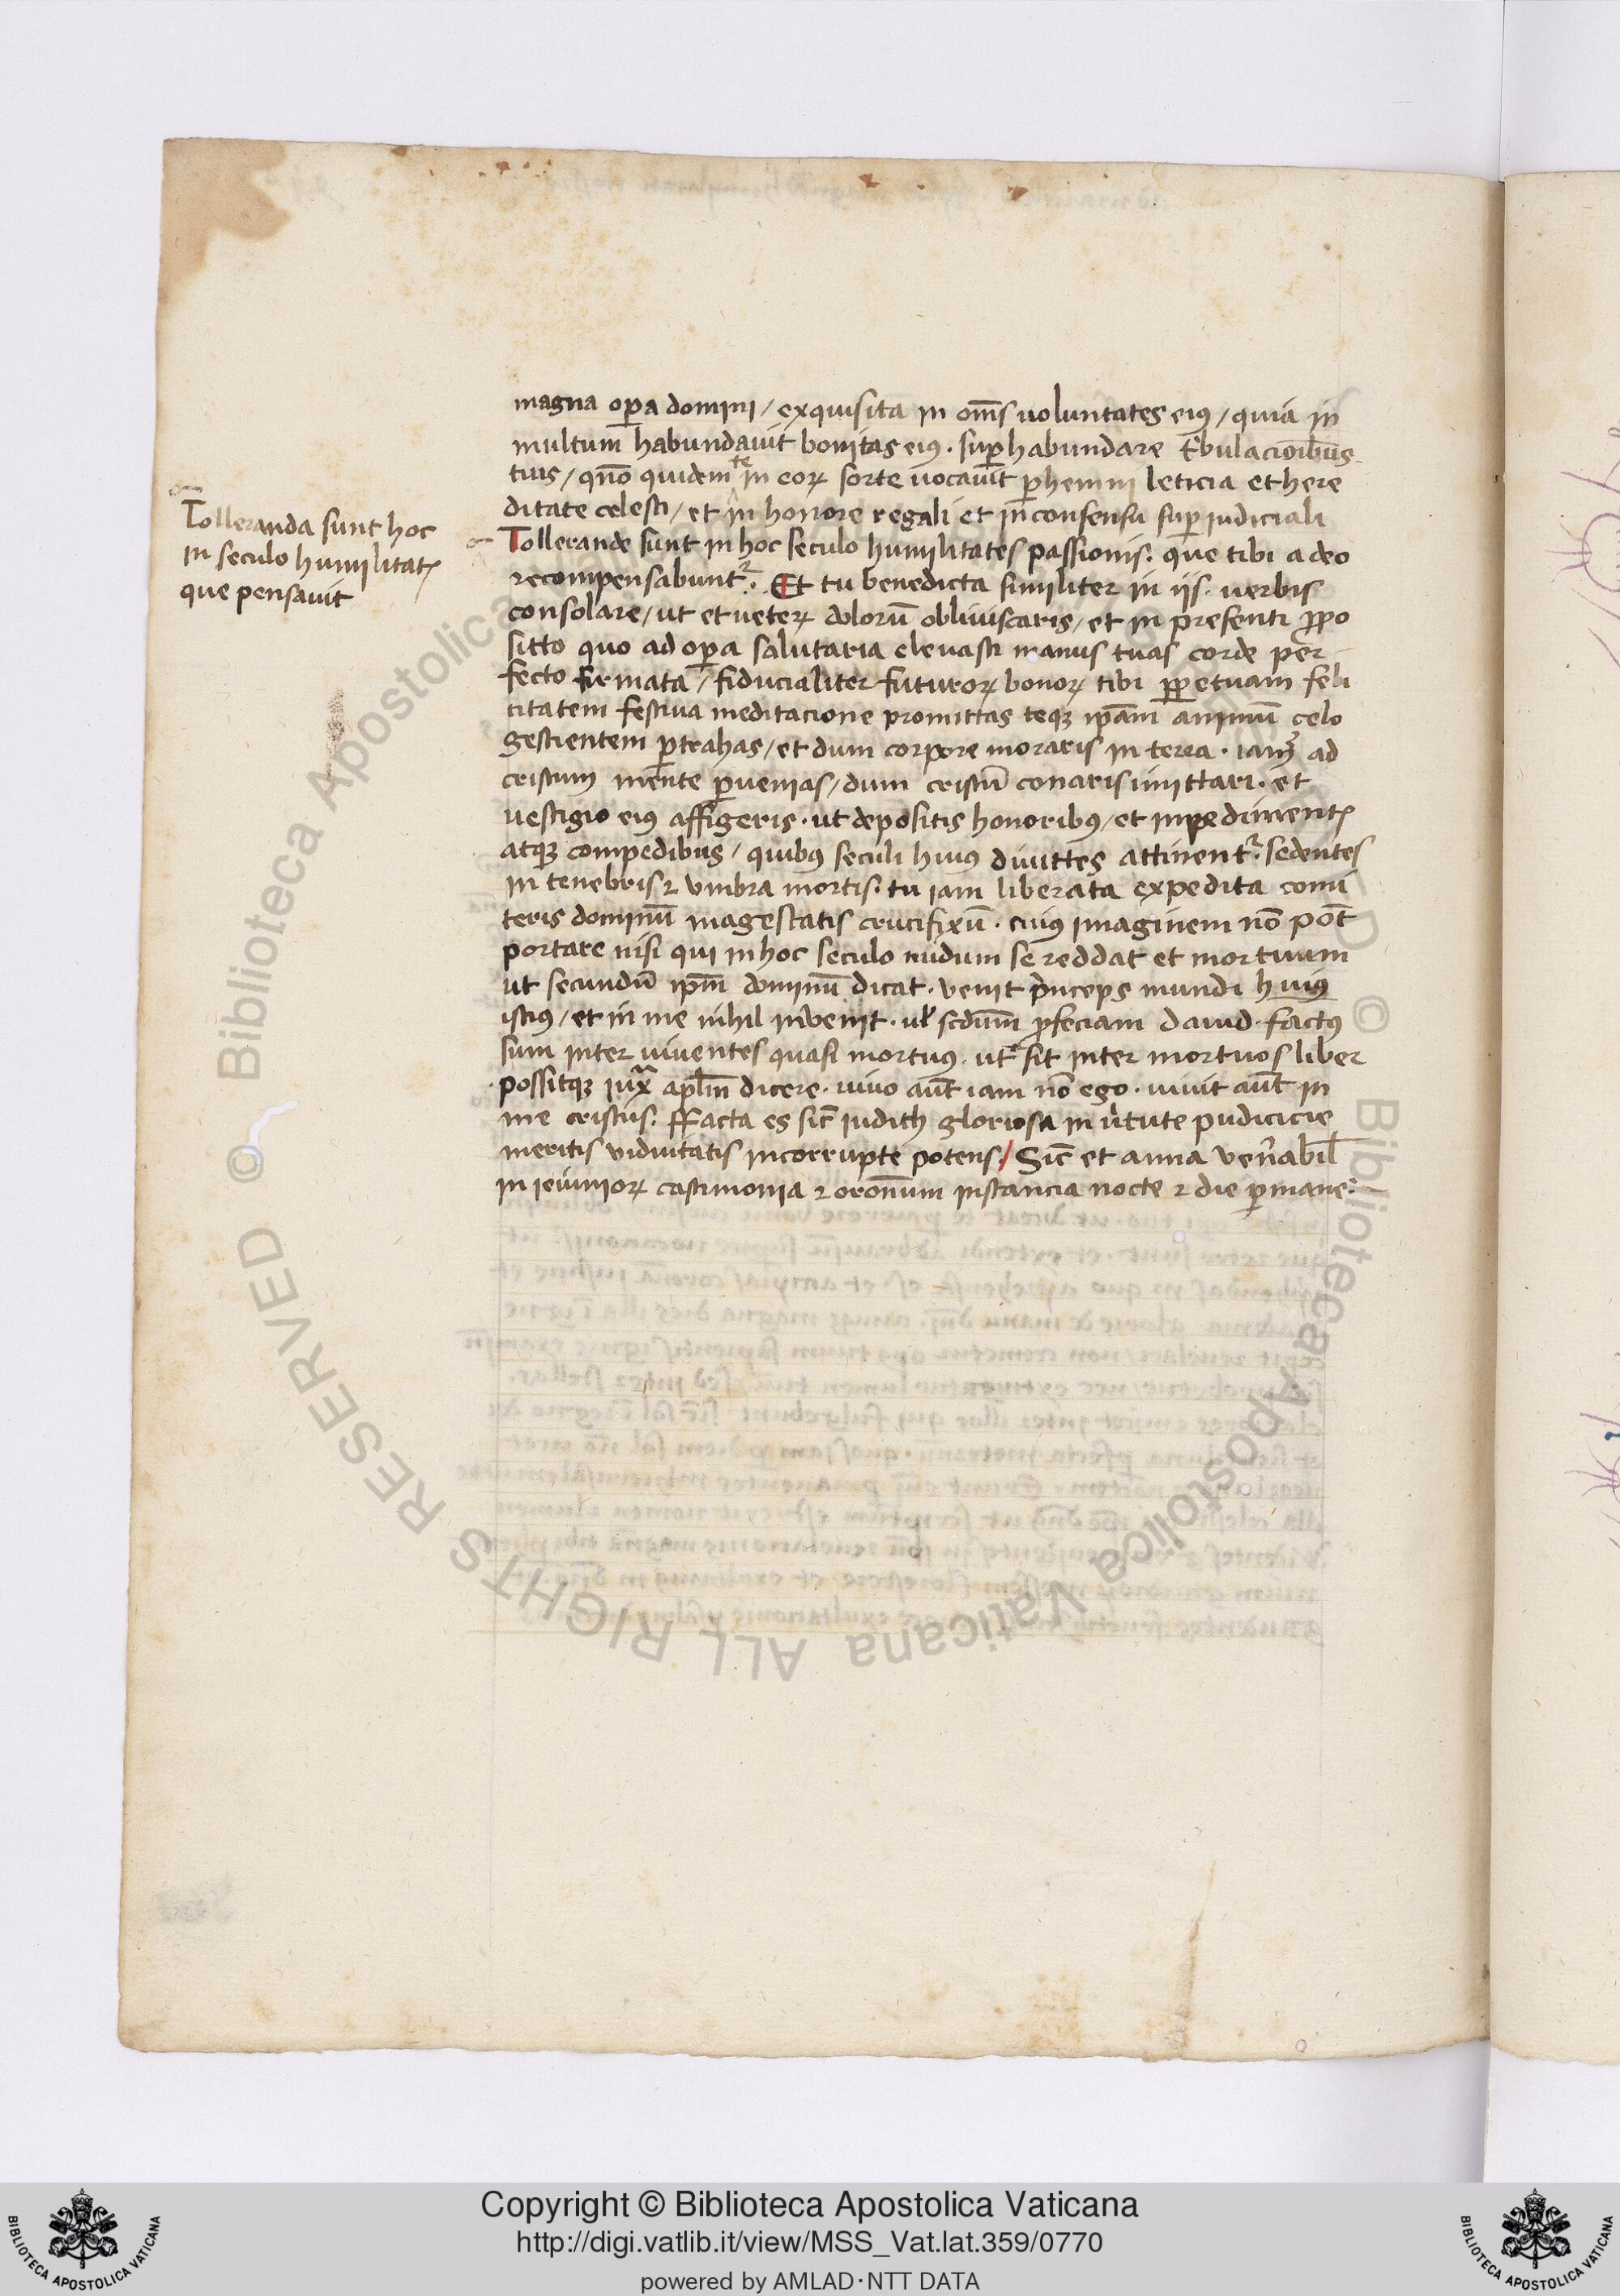 magna opa domini / exquisita in oms uoluntates eius / quia in
multum habundauit bonitas eius . sup habundare tbulacionibus
tuis / qno quidem te in eorꝝ sorte uocauit phenni leticia et here
ditate celesti / et in honore regali et in consensu sup iudiciali
Tollerande sunt in hoc seculo humilitates passionis . que tibi a deo
recompensabuntr . Et tu benedicta similiter in iis . uerbis
consolare / ut et ueterꝝ dolorū obliuiscaris / et in presenti ppo
sitto quo ad opa salutaria eleuasti manus tuas corde per
fecto firmata / fiducialiter futurorꝝ bonorꝝ tibi ppetuam feli
citatem festiua meditacione promittas teqꝫ ipam animū celo
gestientem ptrahas / et dum corpore moraris in terra . iam ad
cristum mente puenias / dum cristū conaris imittari . et
uestigio eius affigeris . ut depositis honoribus / et inpedimentꝭ
atqꝫ compedibus / quibus seculi huius diuittes attinentr . sedentes
in tenebris ⁊ vmbra mortis . tu iam liberata expedita comi
teris dominū magestatis crucifixū . cuius imaginem nō pōt
portare nisi qui in hoc seculo nudum se reddat et mortuum
ut secundū ipm dominū dicat . venit princeps mundi huius
istius / et in me nihil inuenit . ul scdum pfeciam dauid . factus
sum inter uiuentes quasi mortuus . ut sit inter mortuos liber
possitqꝫ iuxa aplm dicere . uiuo aut iam nō ego . uiuit aut in
me cristus . ffacta es sic iudith gloriosa in uitute pudicicie
meritis viduitatis incorrupte potens . / Sic et anna venabil
in ieiuniorꝝ castimonia ⁊ oronum instancia nocte ⁊ die pmane .
Tolleranda sunt hoc
in seculo humilitatꝭ
que pensauit
© Biblioteca Apostolica Vaticana ALL RIGHTS RESERVED
Copyright © Biblioteca Apostolica Vaticana
http://digi.vatlib.it/view/MSS_Vat.lat.359/0770
powered by AMLAD·NTT DATA
BIBLIOTECA APOSTOLICA VATICANA
BIBLIOTECA APOSTOLICA VATICANA